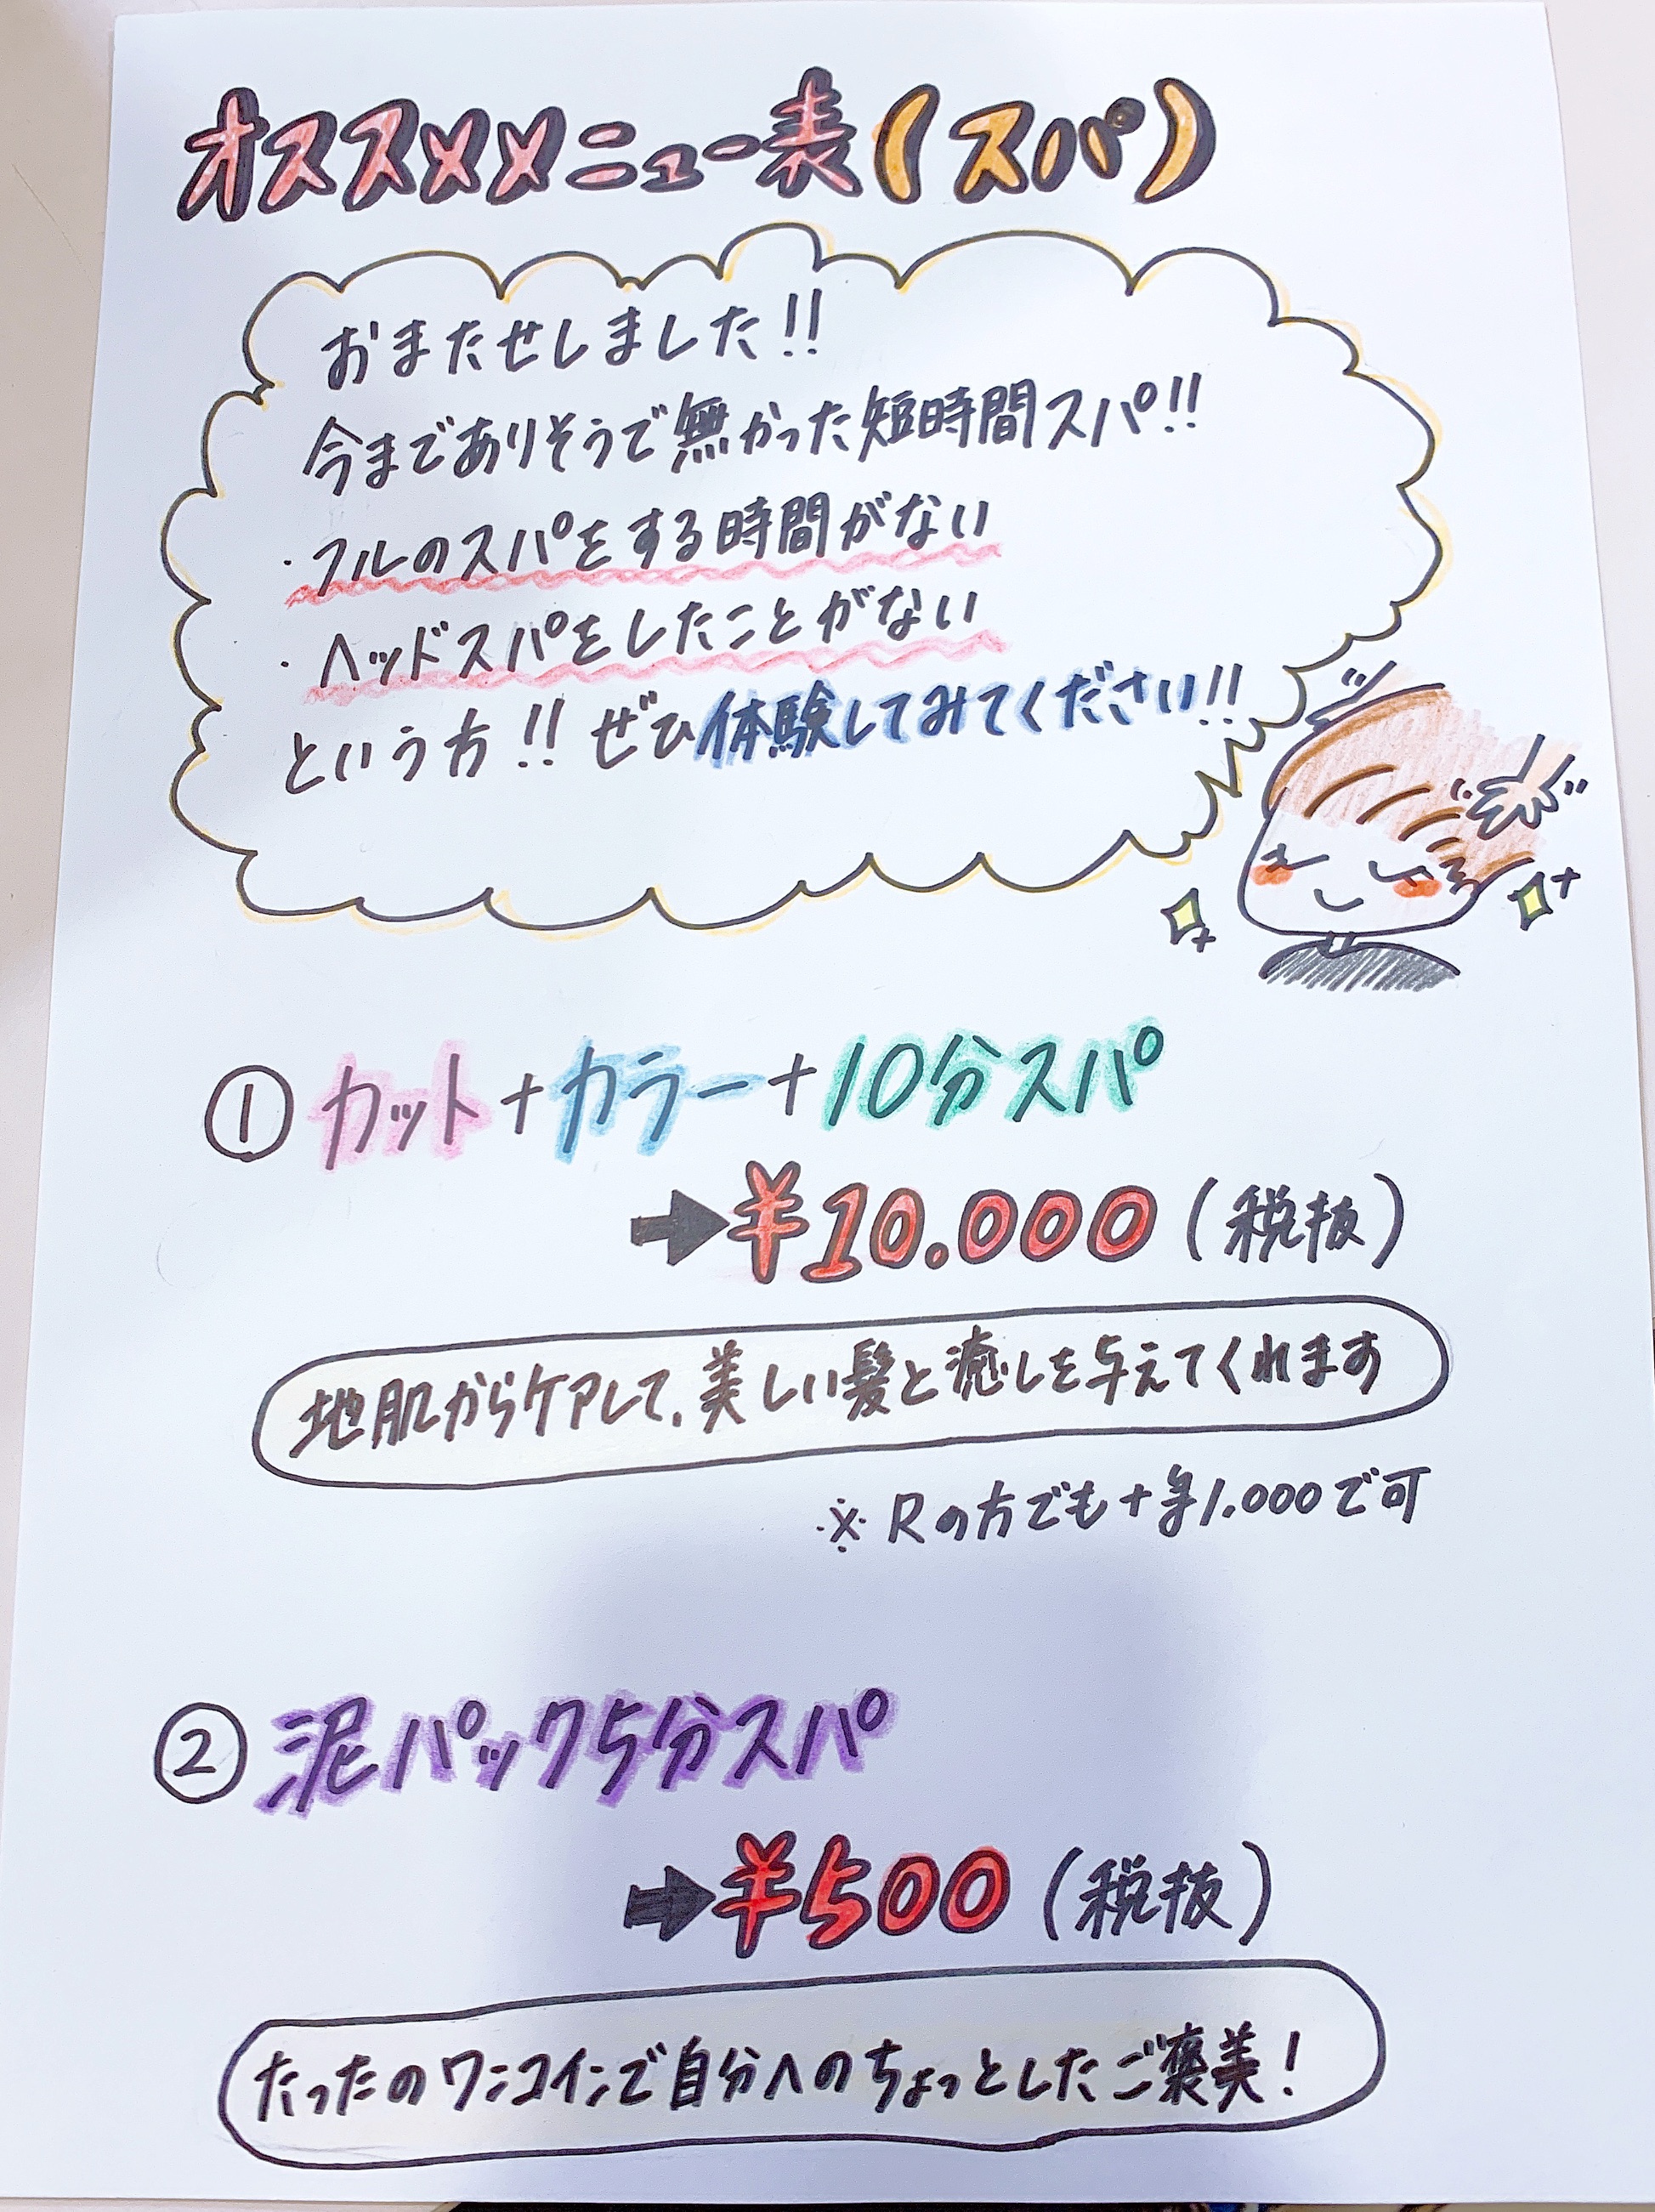 オススメメニュー表(スパ)
おまたせしました!!
今までありそうで無かった短時間スパ!!
・フルのスパをする時間がない
・ヘッドスパをしたことがない
という方!! ぜひ体験してみてください!!
① カット+カラー+10分スパ
➡¥10.000(税抜)
地肌からケアして、美しい髪と癒しを与えてくれます
※Rの方でも+¥1.000で可
② 泥パック5分スパ
➡¥500(税抜)
たったのワンコインで自分へのちょっとしたご褒美!